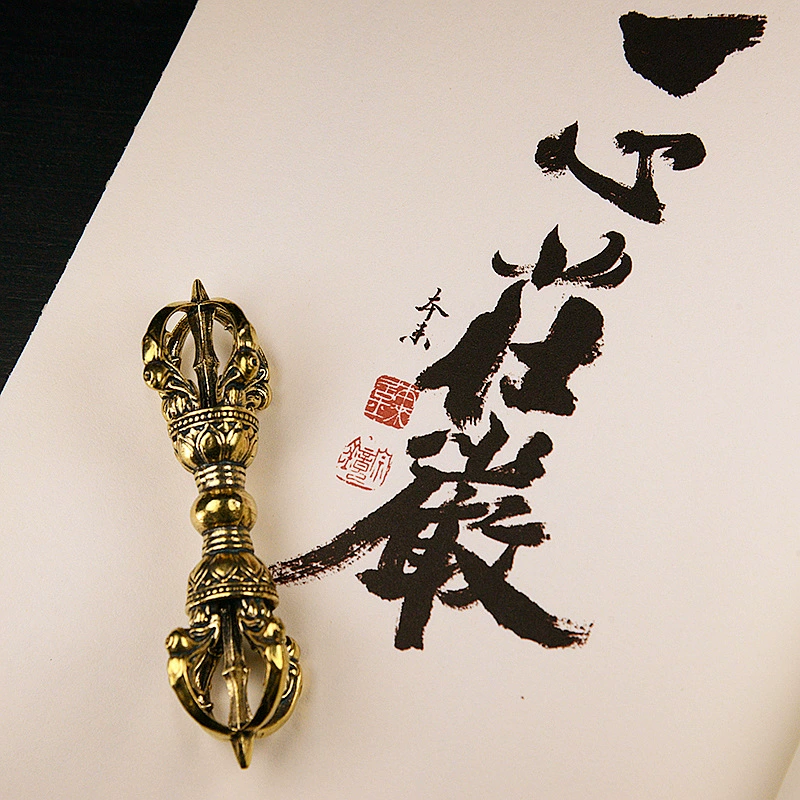 一心莊嚴
本来